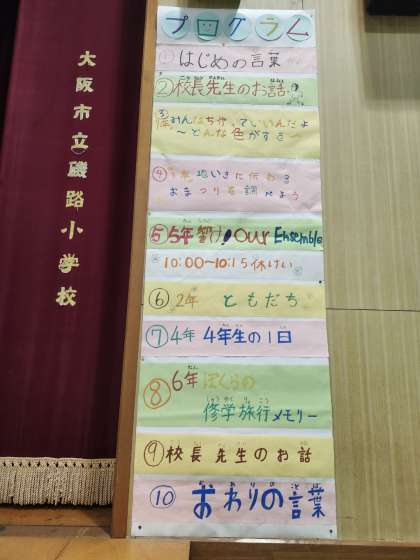 大阪市立磯路小学校
プログラム
① はじめの言葉
② 校長先生のお話
③ みんなちがっていいんだよ
～どんな色がすき～
④ 地いきに伝わる
おまつりを調べよう
⑤ 5年 響け！Our Ensemble
10:00～10:15 休けい
⑥ 2年 ともだち
⑦ 4年 4年生の1日
⑧ 6年 ぼくらの
修学旅行メモリー
⑨ 校長先生のお話
⑩ おわりの言葉